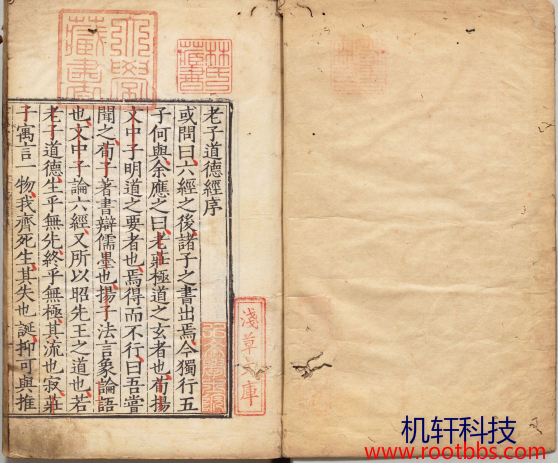 林氏藏書
老子道德經序
或問曰六經之後諸子之書出焉今獨行五
子何與余應之曰老莊極道之玄者也荀揚
文中子明道之要者也焉得而不行曰吾嘗
聞之荀子著書辯儒墨也揚子法言象論語
也文中子論六經又所以昭先王之道也若
老子道德生乎無先終乎無極其流也寂莊
子寓言一物我齊死生其失也誕抑可與推
淺草文庫
机轩科技
www.rootbbs.com